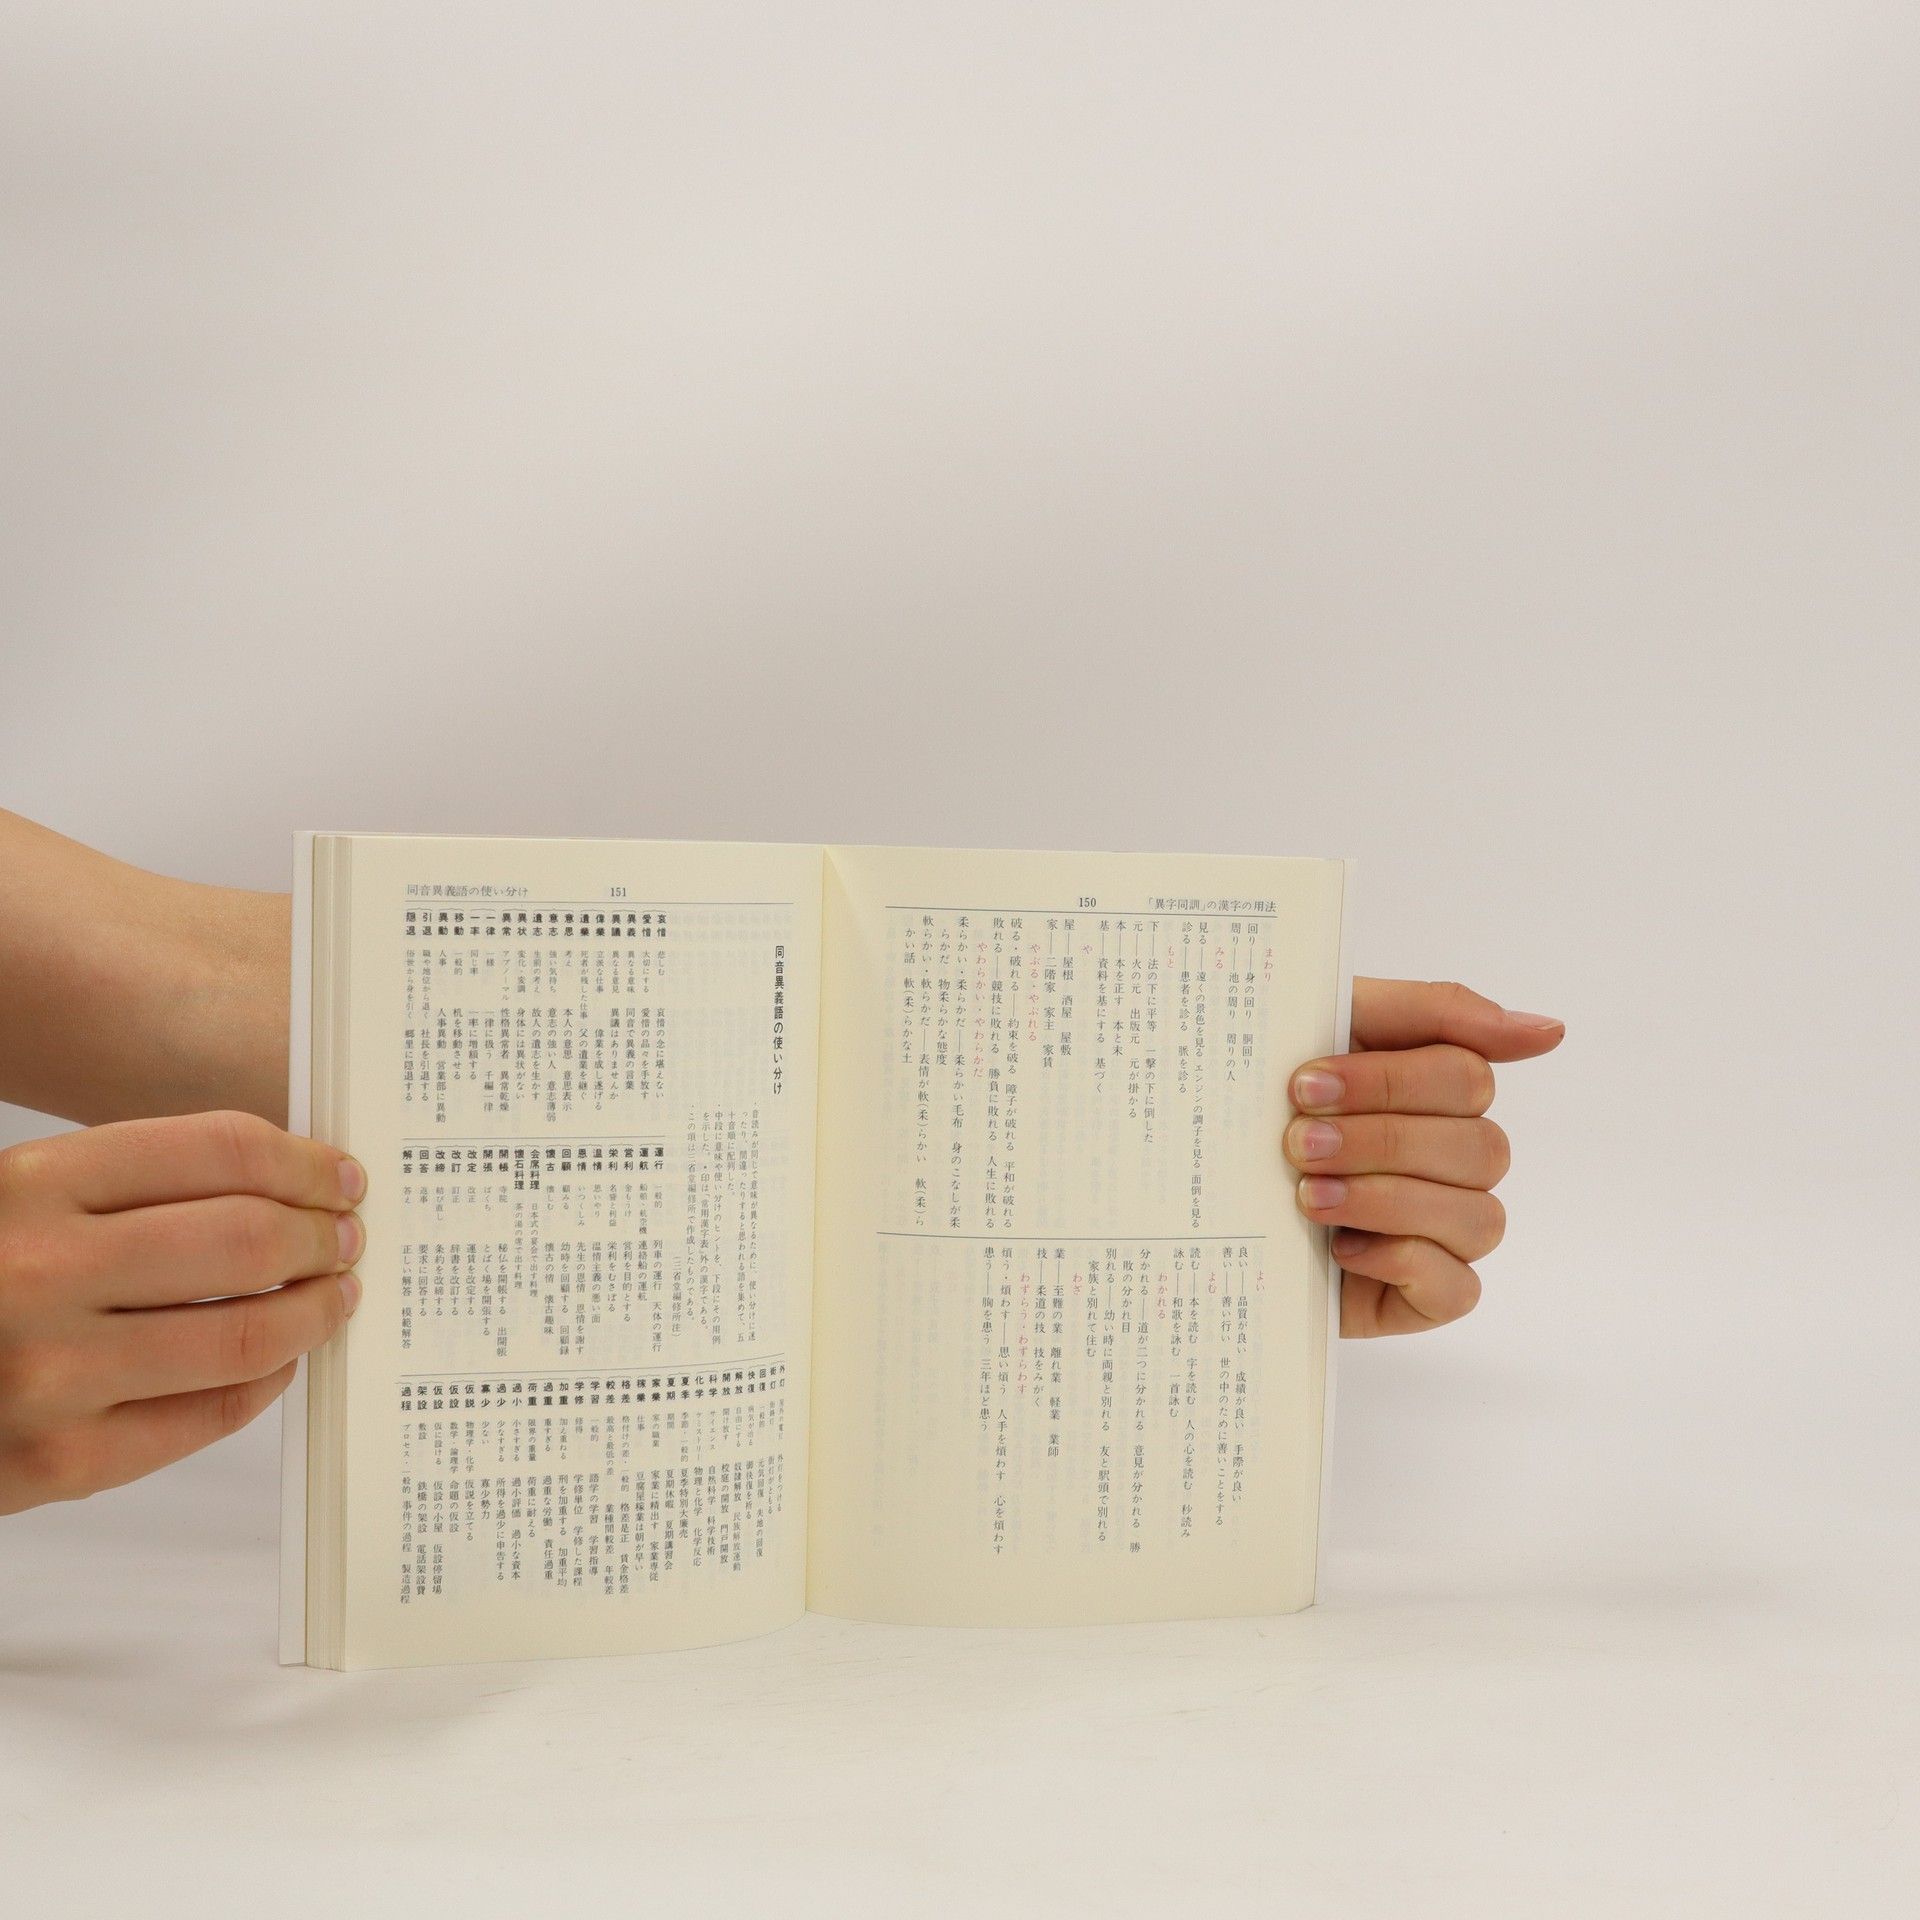 「異字同訓」の漢字の用法
150
まわり
回り――身の回り　胴回り
周り――池の周り　周りの人
みる
見る――遠くの景色を見る　エンジンの調子を見る　面倒を見る
診る――患者を診る　脈を診る
もと
下――法の下に平等　一撃の下に倒した
元――火の元　出版元　元が掛かる
本――本を正す　本と末
基――資料を基にする　基づく
や
屋――屋根　酒屋　屋敷
家――二階家　家主　家賃
やぶる・やぶれる
破る・破れる――約束を破る　障子が破れる　平和が破れる
敗れる――競技に敗れる　勝負に敗れる　人生に敗れる
やわらかい・やわらかだ
柔らかい・柔らかだ――柔らかい毛布　身のこなしが柔
らかだ　物柔らかな態度
軟らかい・軟らかだ――表情が軟(柔)らかい　軟(柔)ら
かい話　軟(柔)らかな土
よい
良い――品質が良い　成績が良い　手際が良い
善い――善い行い　世の中のために善いことをする
よむ
読む――本を読む　字を読む　人の心を読む　秒読み
詠む――和歌を詠む　一首詠む
わかれる
分かれる――道が二つに分かれる　意見が分かれる　勝
敗の分かれ目
別れる――幼い時に両親と別れる　友と駅頭で別れる
家族と別れて住む
わざ
業――至難の業　離れ業　軽業　業師
技――柔道の技　技をみがく
わずらう・わずらわす
煩う・煩わす――思い煩う　人手を煩わす　心を煩わす
患う――胸を患う　三年ほど患う
同音異義語の使い分け
151
同音異義語の使い分け
・音読みが同じで意味が異なるために、使い分けに迷
ったり、間違ったりすると思われる語を集めて、五
十音順に配列した。
・中段に意味や使い分けのヒントを、下段にその用例
を示した。・印は「常用漢字表」外の漢字である。
・この項は三省堂編修所で作成したものである。
(三省堂編修所注)
哀惜　悲しむ　哀惜の念に堪えない
愛惜　大切にする　愛惜の品々を手放す
異義　異なる意味　同音で異義の言葉
異議　異なる意見　異議はありませんか
偉業　立派な仕事　偉業を成し遂げる
遺業　死者が残した仕事　父の遺業を継ぐ
意思　考え　本人の意思　意思表示
意志　強い気持ち　意志の強い人　意志薄弱
遺志　生前の考え　故人の遺志を生かす
異状　変化・変調　身体には異状がない
異常　アブノーマル　性格異常者　異常乾燥
一律　一様　一律に扱う　千編一律
一率　同じ率　一率に増額する
移動　一般的　机を移動させる
異動　人事　人事異動　営業部に異動
引退　職や地位から退く　社長を引退する
隠退　俗世から身を引く　郷里に隠退する
運行　一般的　列車の運行　天体の運行
運航　船舶・航空機　連絡船の運航
営利　金もうけ　営利を目的とする
栄利　名誉と利益　栄利をむさぼる
温情　思いやり　温情主義の悪い面
恩情　いつくしみ　先生の恩情　恩情を謝す
回顧　顧みる　幼時を回顧する　回顧録
懐古　懐しむ　懐古の情　懐古趣味
会席料理　日本式の宴会で出す料理
懐石料理　茶の湯の席で出す料理
開帳　寺院　秘仏を開帳する　出開帳
開張　ばくち　とばく場を開張する
改定　改正　運賃を改定する
改訂　訂正　辞書を改訂する
改締　結び直し　条約を改締する
回答　返事　要求に回答する
解答　答え　正しい解答　模範解答
外灯　屋外の電灯　外灯をつける
街灯　街路灯　街灯がともる
回復　一般的　元気回復　失地の回復
快復　病気が治る　御快復を祈る
解放　自由にする　奴隷解放　民族解放運動
開放　開け放す　校庭の開放　門戸開放
科学　サイエンス　自然科学　科学技術
化学　ケミストリー　物理と化学　化学反応
夏季　季節・一般的　夏季特別大廉売
夏期　期間　夏期休暇　夏期講習会
家業　家の職業　家業に精出す　家業専従
稼業　仕事　豆腐屋稼業は朝が早い
格差　格付けの差・一般的　格差是正　賃金格差
較差　最高と最低の差　業種間較差　年較差
学習　一般的　語学の学習　学習指導
学修　修得　学修単位　学修した課程
加重　加え重ねる　刑を加重する　加重平均
過重　重すぎる　過重な労働　責任過重
荷重　限界の重量　荷重に耐える
過小　小さすぎる　過小評価　過小な資本
過少　少なすぎる　所得を過少に申告する
寡少　少ない　寡少勢力
仮説　物理学・化学　仮説を立てる
仮設　数学・論理学　命題の仮設
仮設　仮に設ける　仮設の小屋　仮設停留場
架設　敷設　鉄橋の架設　電話架設費
過程　プロセス・一般的　事件の過程　製造過程